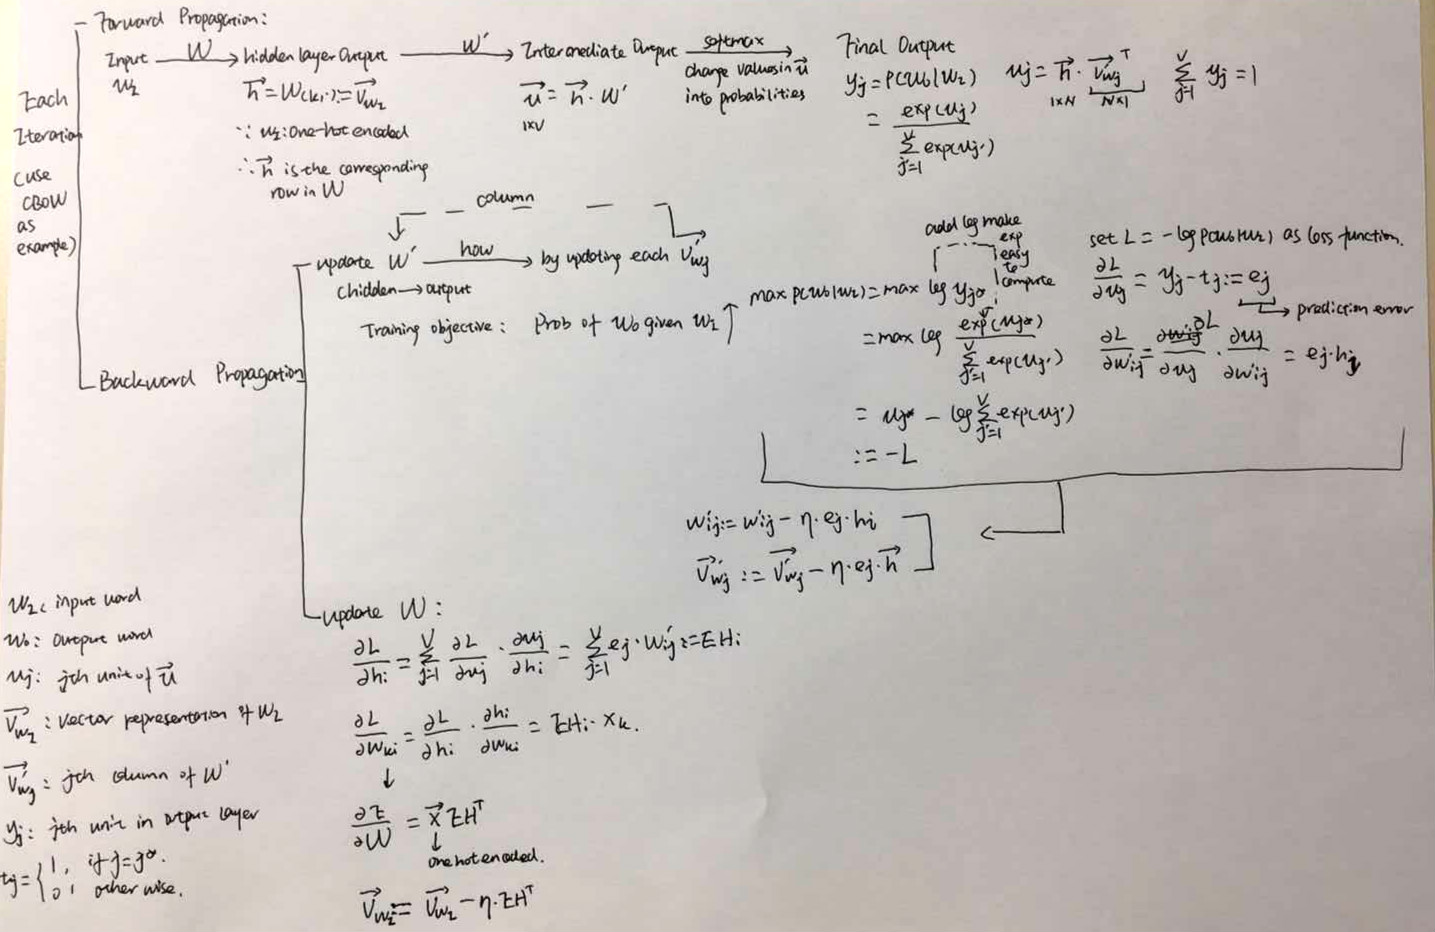 Forward Propagation:
Input W hidden layer Output W' Intermediate Output softmax Final Output
w_I
h⃗ = W(k,·) := v⃗_{w_I}
∵ w_I: one-hot encoded
∴ h⃗ is the corresponding
row in W
u⃗ = h⃗ · W'
1×V
change values in u⃗
into probabilities
y_j = p(w_o|w_I)
= exp(u_j) / Σ_{j'=1}^{V} exp(u_j')
u_j = h⃗ · v⃗'_{w_j}^T
1×N N×1
Σ_{j=1}^{V} y_j = 1
Each
Iteration
(use
CBOW
as
example)
column
update W' how by updating each v⃗'_{w_j}
(hidden → output
Training objective: Prob of w_o given w_I ↑
add log make
exp
easy
to
compute
max p(w_o|w_I) = max log y_{j*}
= max log exp(u_{j*}) / Σ_{j'=1}^{V} exp(u_j')
= u_{j*} - log Σ_{j'=1}^{V} exp(u_j')
:= -L
set L = -log p(w_o|w_I) as loss function.
∂L/∂u_j = y_j - t_j := e_j
prediction error
∂L/∂w'_{ij} = ∂L/∂u_j · ∂u_j/∂w'_{ij} = e_j · h_i
Backward Propagation
w'_{ij} := w'_{ij} - η · e_j · h_i
v⃗'_{w_j} := v⃗'_{w_j} - η · e_j · h⃗
update W:
∂L/∂h_i = Σ_{j=1}^{V} ∂L/∂u_j · ∂u_j/∂h_i = Σ_{j=1}^{V} e_j · w'_{ij} := EH_i
∂L/∂w_{ki} = ∂L/∂h_i · ∂h_i/∂w_{ki} = EH_i · x_k.
↓
∂E/∂W = x⃗ EH^T
↓
one hot encoded.
v⃗_{w_I} := v⃗_{w_I} - η · EH^T
w_I: input word
w_o: output word
u_j: jth unit of u⃗
v⃗_{w_I}: vector representation of w_I
v⃗'_{w_j}: jth column of W'
y_j: jth unit in output layer
t_j = { 1, if j = j*.
0, otherwise.